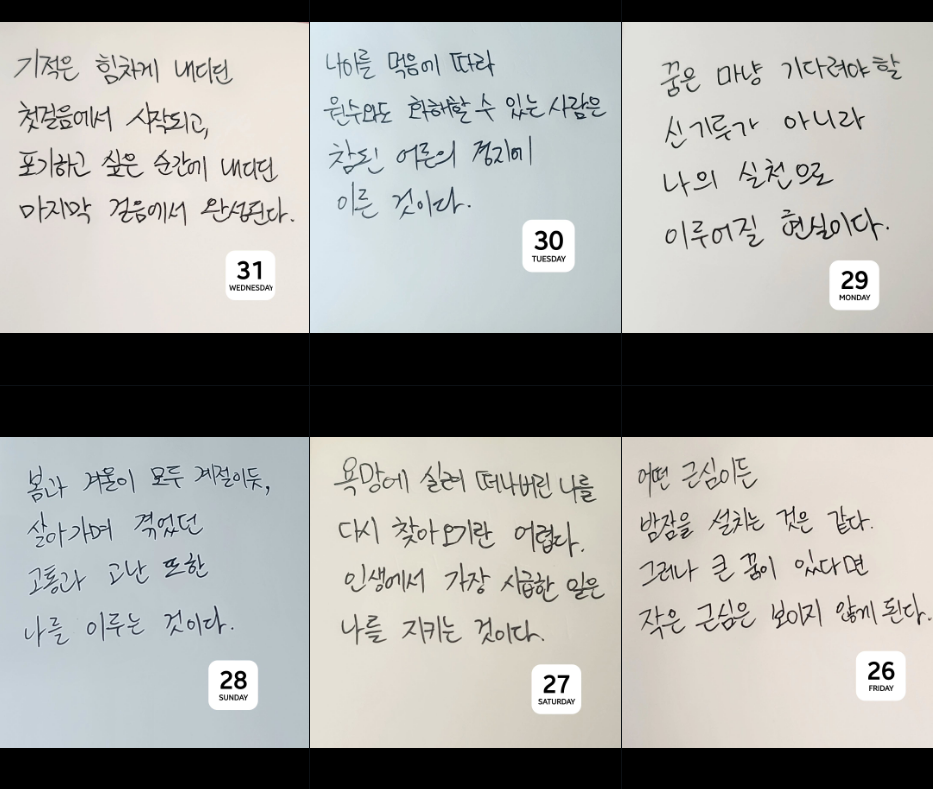 기적은 힘차게 내디딘
첫걸음에서 시작되고,
포기하고 싶은 순간에 내디딘
마지막 걸음에서 완성된다.
31
WEDNESDAY
나이를 먹음에 따라
원수와도 화해할 수 있는 사람은
참된 어른의 경지에
이른 것이다.
30
TUESDAY
꿈은 마냥 기다려야 할
신기루가 아니라
나의 실천으로
이루어질 현실이다.
29
MONDAY
봄과 겨울이 모두 계절이듯,
살아가며 겪었던
고통과 고난 또한
나를 이루는 것이다.
28
SUNDAY
욕망에 실려 떠나버린 나를
다시 찾아오기란 어렵다.
인생에서 가장 시급한 일은
나를 지키는 것이다.
27
SATURDAY
어떤 근심이든
밤잠을 설치는 것은 같다.
그러나 큰 꿈이 있다면
작은 근심은 보이지 않게 된다.
26
FRIDAY